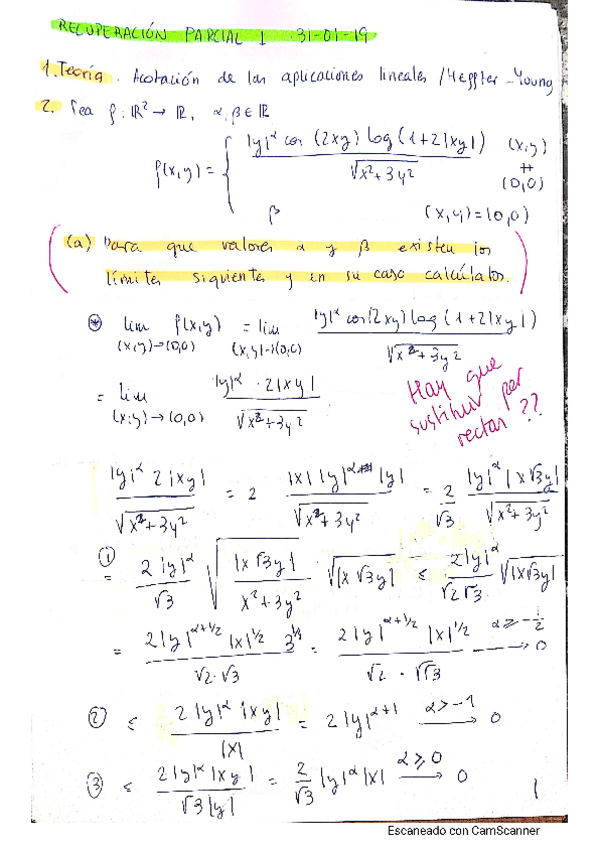 RECUPERACIÓN PARCIAL 1 31-01-19
1. Teoría. Acotación de las aplicaciones lineales / Heffter-Young
2. Sea f: ℝ² → ℝ, α, β ∈ ℝ
f(x,y) = { |y|^α cos(2xy) log(1+2|xy|) / √(x²+3y²) (x,y) ≠ (0,0)
β (x,y) = (0,0)
(a) Para que valores α y β existen los
límites siguientes y en su caso calcúlalos.
⊛ lim_{(x,y)→(0,0)} f(x,y) = lim_{(x,y)→(0,0)} |y|^α cos(2xy) log(1+2|xy|) / √(x²+3y²)
= lim_{(x,y)→(0,0)} |y|^α · 2|xy| / √(x²+3y²)
Hay que
sustituir por
rectas??
|y|^α 2|xy| / √(x²+3y²) = 2 |x| |y|^α |y| / √(x²+3y²) = 2/√3 |y|^α |x√3y| / √(x²+3y²)
① = 2|y|^α / √3 √(|x√3y| / (x²+3y²)) √|x√3y| ≤ 2|y|^α / √2√3 √|x√3y|
= 2|y|^{α+1/2} |x|^{1/2} 3^{1/4} / √2·√3 = 2|y|^{α+1/2} |x|^{1/2} / √2·√√3 α ≥ -1/2 → 0
② ≤ 2|y|^α |xy| / |x| = 2|y|^{α+1} α > -1 → 0
③ ≤ 2|y|^α |xy| / √3|y| = 2/√3 |y|^α |x| α ≥ 0 → 0
1
Escaneado con CamScanner